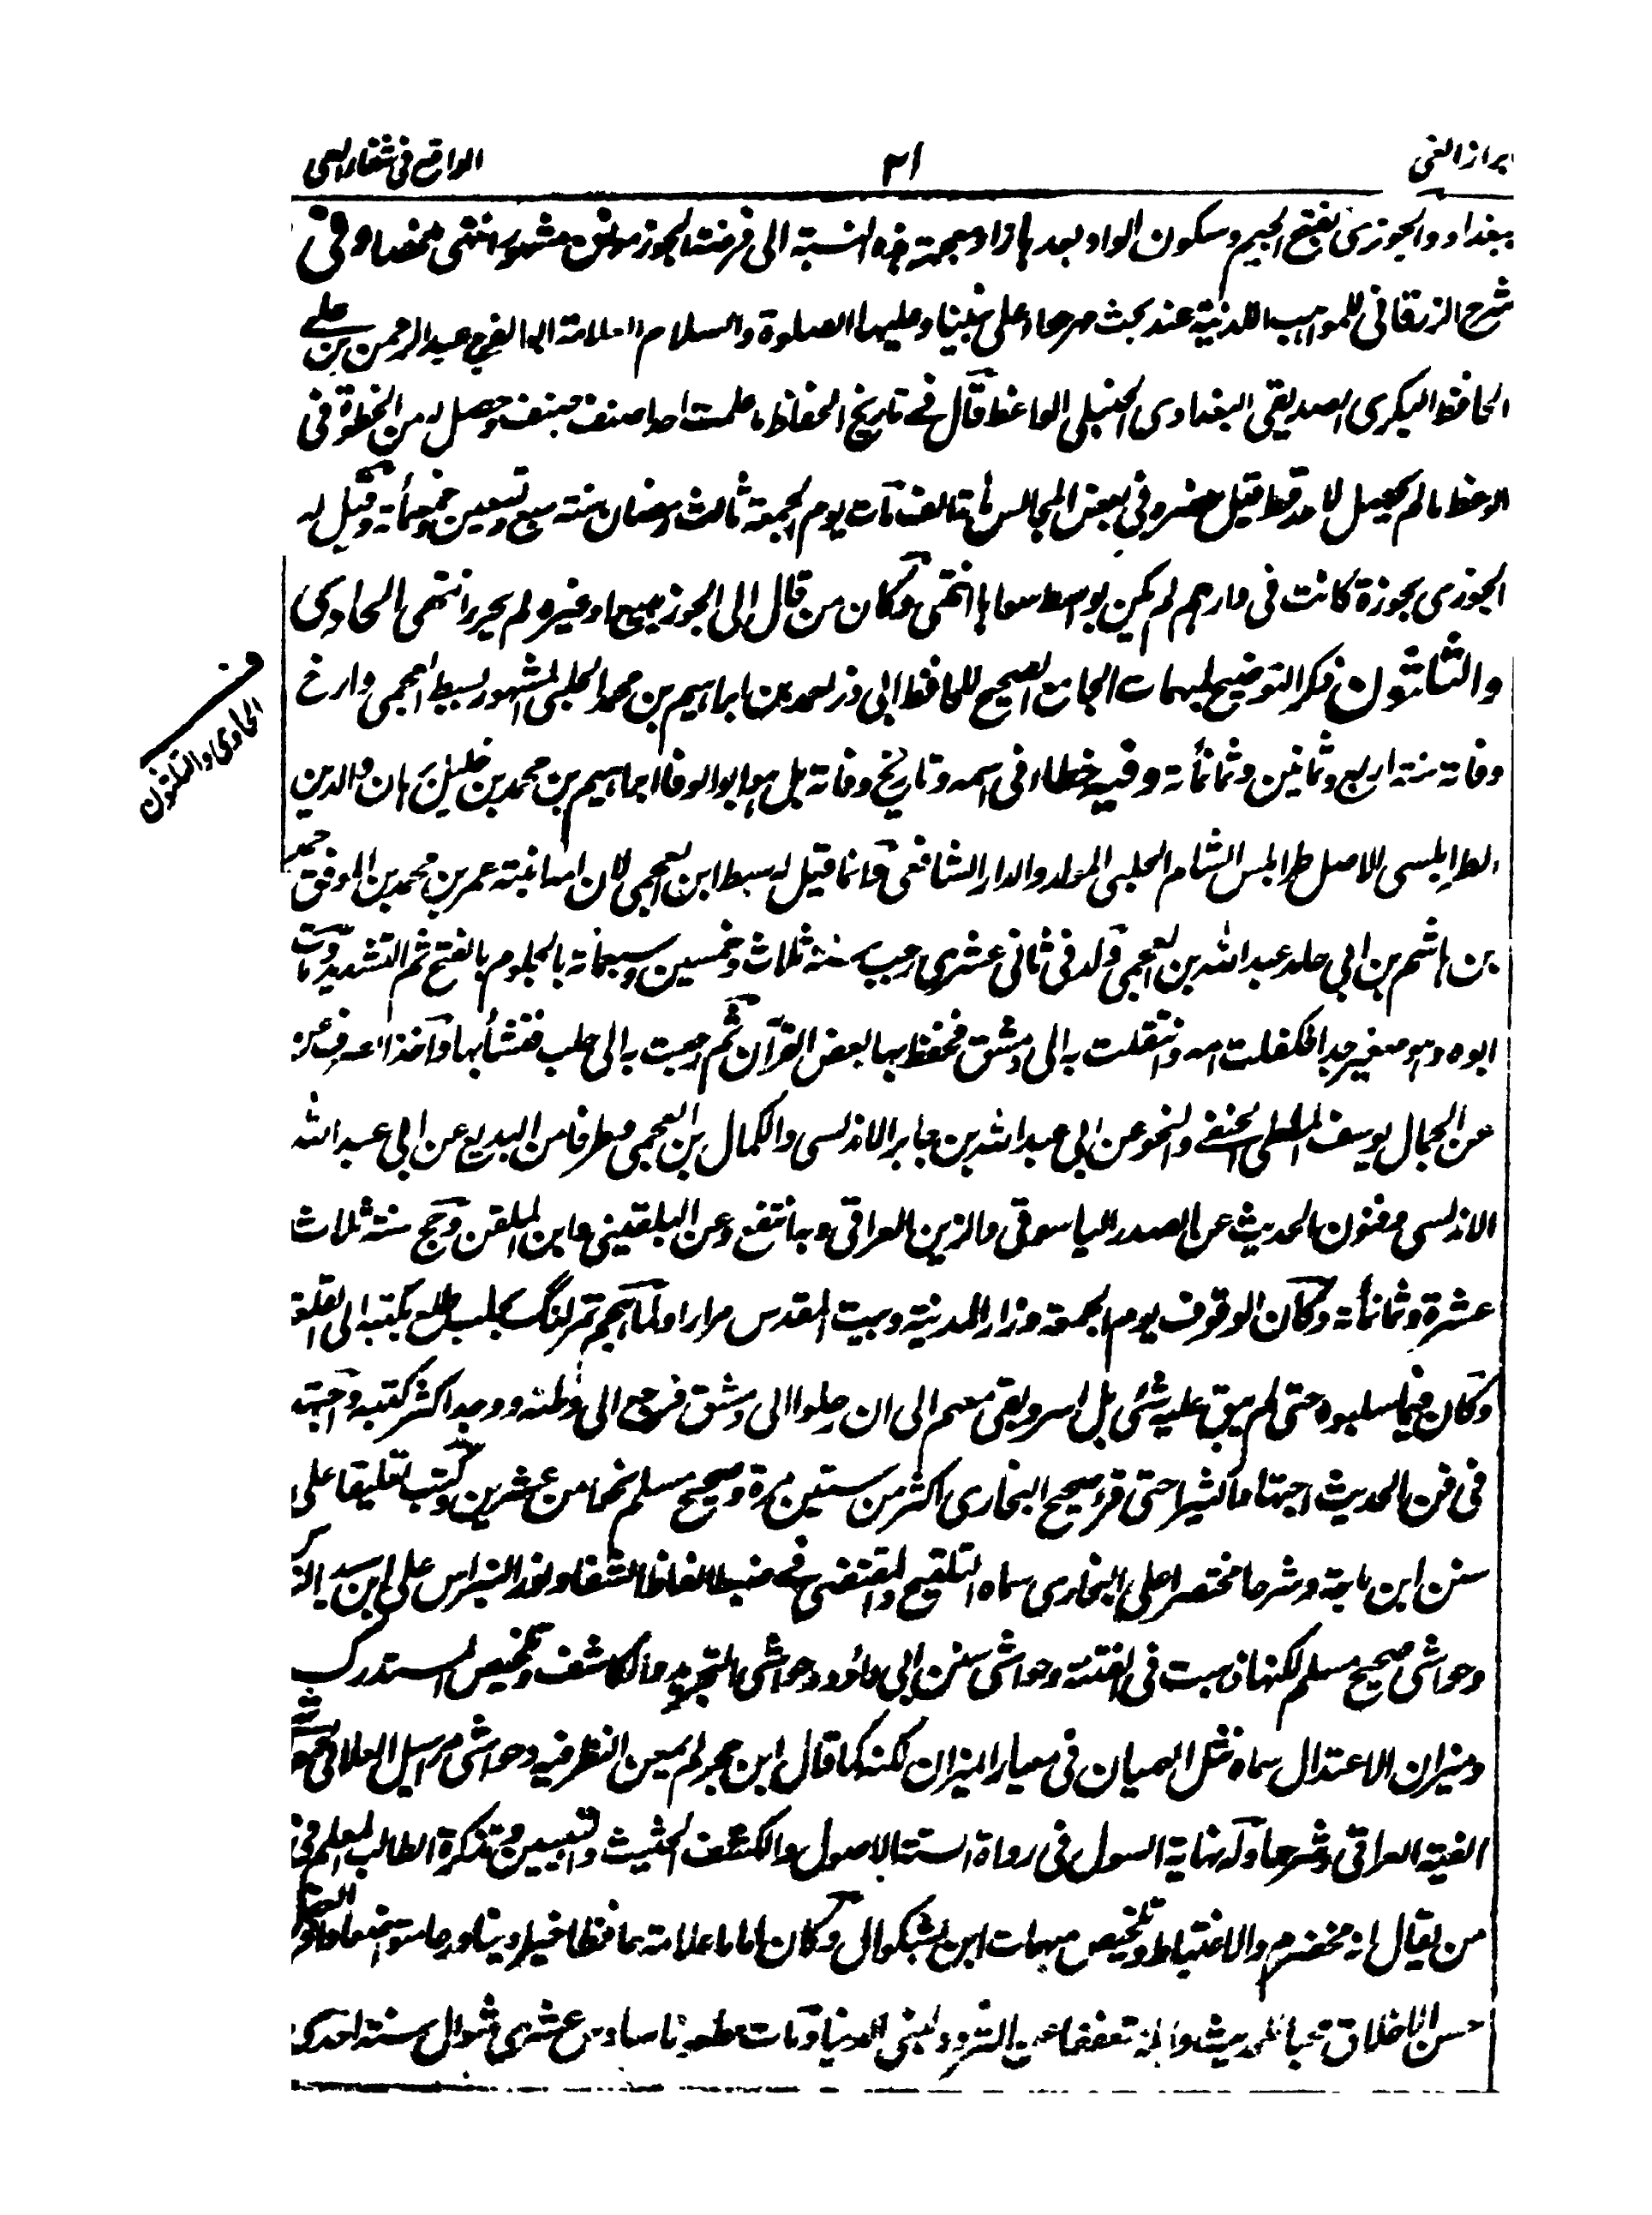 ابراز الغی ٣١ الواقع فی شفاء العی
ببغداد والجوزی بفتح الجیم وسکون الواو بعدہا زاء معجمة ہذہ النسبة الی فرضة الجوز موضع مشہور انتہی ملخصا وفی
شرح الزرقانی للمواہب اللدنیة عند بحث مرحاء علی نبینا وعلیہا الصلوة والسلام العلامة ابو الفرج عبد الرحمن بن علی
الحافظ البکری الصدیقی البغدادی الحنبلی الواعظ قال فی تاریخ الحفاظ ما علمت احدا صنف ما صنف وحصل لہ من الحظوة فی
الوعظ ما لم یحصل لاحد قط قیل حضرہ فی بعض المجالس مائة الف مات یوم الجمعة ثالث رمضان سنة سبع وتسعین وخمسمأة وقیل لہ
الجوزی بجوزة کانت فی دارہم لم یکن بواسط سواہا انتہی وکان من قال الی الجوز بیعا او غیرہ لم یحرر انتہی الحادی
والثلاثون ذکر التوضیح لمبہمات الجامع الصحیح للحافظ ابی ذر احمد بن ابراہیم بن محمد الحلبی المشہور بسبط العجمی وارخ
وفاتہ سنة اربع وثمانین وثمانمأة وفیہ خطاء فی اسمہ وتاریخ وفاتہ بل ہو ابو الوفا ابراہیم بن محمد بن خلیل برہان الدین
الطرابلسی الاصل طرابلس الشام الحلبی المولد والدار الشافعی وانما قیل لہ سبط ابن العجمی لان امہ ابنة عمر بن محمد بن الموفق احمد
بن ہاشم بن ابی حامد عبد اللہ بن العجمی ولد فی ثانی عشری رجب سنة ثلاث وخمسین وسبعمائة بالجلوم بالفتح ثم التشدید ومات
ابوہ وہو صغیر جدا فکفلتہ امہ وانتقلت بہ الی دمشق فحفظ بہا بعض القرآن ثم رجعت بہ الی حلب فنشأ بہا واخذ الصرف
عن الجمال یوسف الملطی الحنفی والنحو عن ابی عبد اللہ بن جابر الاندلسی والکمال بن العجمی وطرفا من البدیع عن ابی عبد اللہ
الاندلسی وفنون الحدیث عن الصدر الیاسوفی والزین العراقی وبہ انتفع وعن البلقینی وابن الملقن وحج سنة ثلاث
عشرة وثمانمأة وکان الوقوف یوم الجمعة وزار المدینة وبیت المقدس مرارا ولما ہجم تمرلنگ بحلب طلع بکتبہ الی القلعة
وکان فیما سلبوہ حتی لم یبق علیہ شئ بل اسر وبقی معہم الی ان رحلوا الی دمشق فرجع الی وطنہ ووجد اکثر کتبہ واجتہد
فی فن الحدیث اجتہادا کثیرا حتی قرء صحیح البخاری اکثر من ستین مرة وصحیح مسلم نحوا من عشرین وکتب تعلیقا علی
سنن ابن ماجة وشرحا مختصرا علی البخاری سماہ التلقیح والمقتضی فی ضبط الفاظ الشفا ونور النبراس علی ابن سید الناس
وحواشی صحیح مسلم لکنہا ذہبت فی الفتنة وحواشی سنن ابی داؤد وحواشی التجرید والکاشف وتلخیص المستدرک
ومیزان الاعتدال سماہ نثل الہمیان فی معیار المیزان لکنہ کما قال ابن حجر لم یمعن النظر فیہ وحواشی مراسیل العلائی
الفیة العراقی وشرحہا ولہ نہایة السول فی رواة الستة الاصول والکشف الحثیث والتبیین وتذکرة الطالب المعلم فی
من یقال انہ مخضرم والاغتباط وتلخیص مبہمات ابن بشکوال وکان اماما علامة حافظا خیرا دینا ورعا متواضعا وافر العقل
حسن الاخلاق محبا للحدیث واہلہ متعففا عن التردد لبنی الدنیا ومات مطعونا سادس عشری شوال سنة احدی
ف
الحادی والثلثون